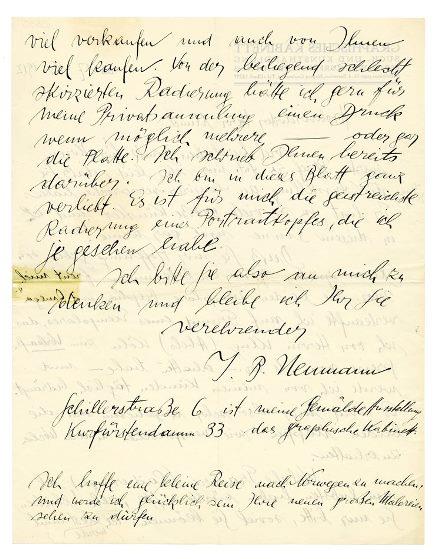 viel verkaufen und auch von Ihnen
viel kaufen. Von der beiliegend schlecht
skizzierten Radierung hätte ich gern für
meine Privatsammlung einen Druck
wenn möglich mehrere — oder gar
die Platte. Ich schrieb Ihnen bereits
darüber. Ich bin in dieses Blatt ganz
verliebt. Es ist für mich die geistreichste
Radierung eines Portraitkopfes, die ich
je gesehen habe
Ich bitte Sie also an mich zu
denken und bleibe ich Ihr Sie
verehrender
J. B. Neumann
Schillerstraße 6 ist meine Gemälde Ausstellung
Kurfürstendamm 33 das graphische Kabinett.
Ich hoffe eine kleine Reise nach Norwegen zu machen
und werde ich glücklich sein Ihre neuen großen Malereien
sehen zu dürfen